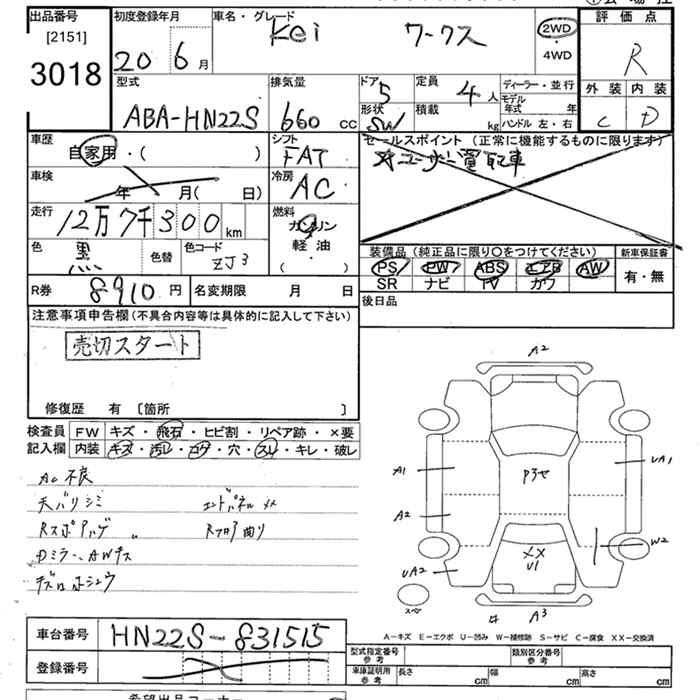 出品番号 初度登録年月 車名・グレード 評価点
[2151] 20 6月 Kei ワークス 2WD・4WD R
3018
型式 排気量 ドア 定員 ディーラー・並行 外装 内装
ABA-HN22S 660cc 5 4人 モデル年式 年 C D
形状 積載 kg ハンドル 左・右
SW
車歴 シフト セールスポイント (正常に機能するものに限ります)
自家用・( ) FAT ユーザー買取車
車検 冷房
年 月( 日) AC
走行 燃料
12万7千300km ガソリン
色 色替 色コード 軽油・
黒 ZJ3 ( )
装備品 (純正品に限り○をつけてください) 新車保証書
PS PW ABS エアB AW 有・無
SR ナビ TV カワ
R券 8910円 名変期限 月 日 後日品
注意事項申告欄 (不具合内容等は具体的に記入して下さい)
売切スタート
修復歴 有 [箇所 ]
検査員 FW キズ・飛石・ヒビ割・リペア跡・×要
記入欄 内装 キズ・汚レ・コゲ・穴・スレ・キレ・破レ
AC不良
天バリシミ エンドパネル
Rスポハゲ
Dミラー、AWキズ
キズロホシュウ
A2
A1 P3セ UA1
A2 W2
UA2 XX
U1
スペ A3
A－キズ E－エクボ U－凹み W－補修跡 S－サビ C－腐食 XX－交換済
車台番号 HN22S 831515
登録番号
型式指定番号 参考 類別区分番号 参考
車庫証明用 参考 長さ cm 幅 cm 高さ cm
希望出品コーナー